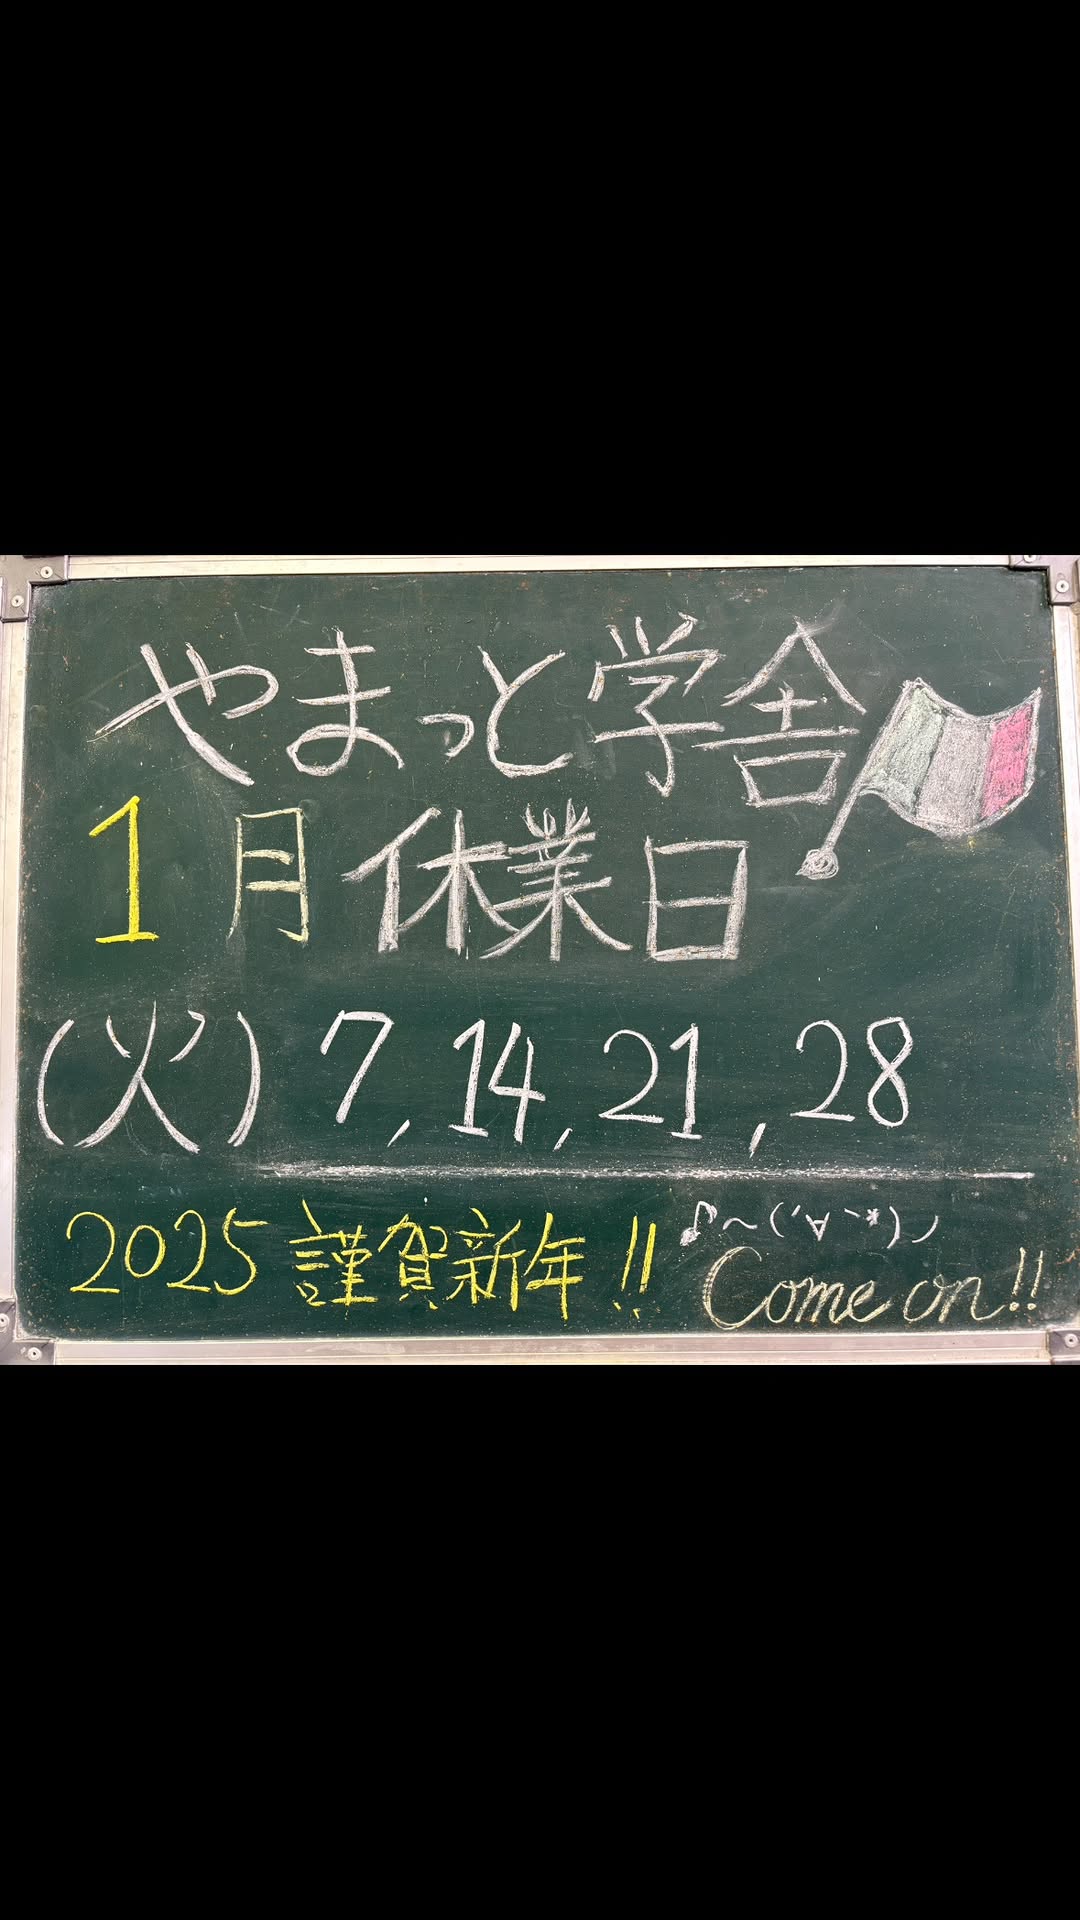 やまっと学舎
1月休業日
(火) 7, 14, 21, 28
2025 謹賀新年!!
♪〜(´,∀`*)ノ
Come on!!